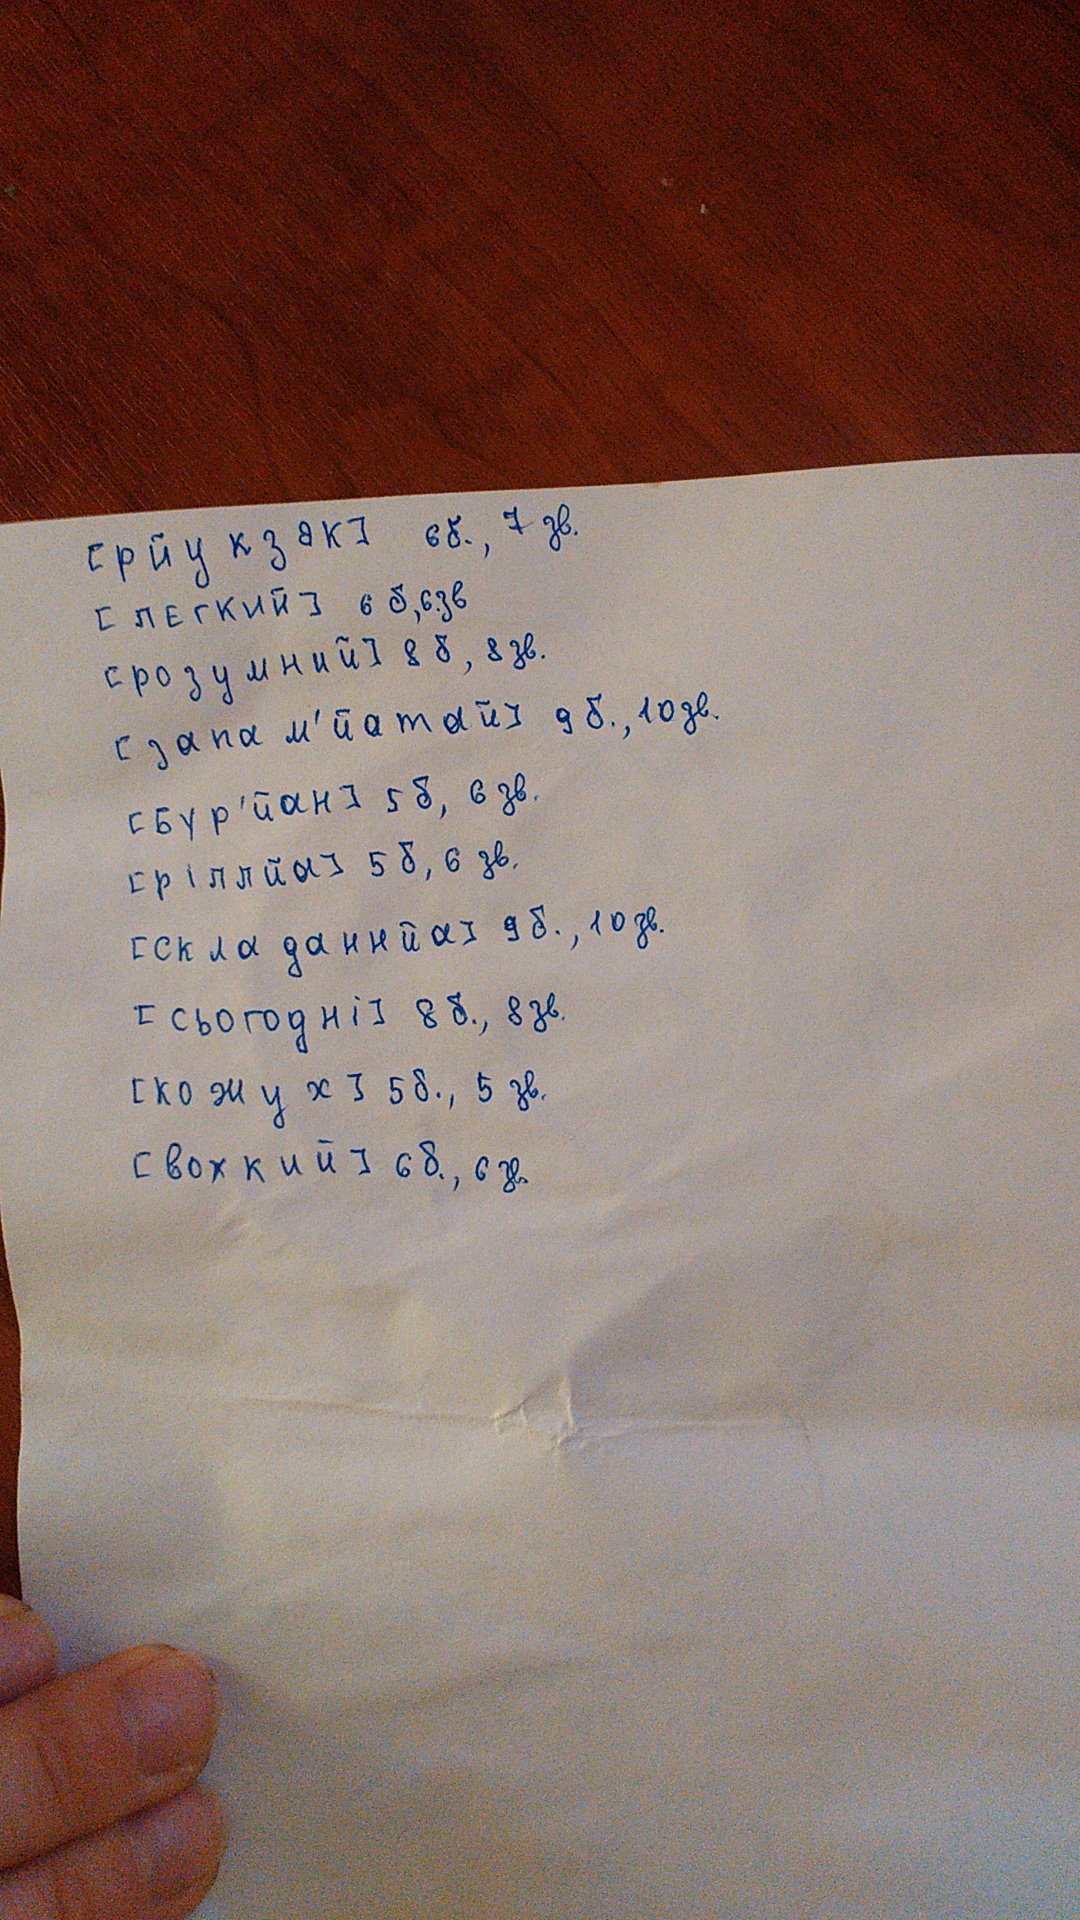 [рйукзак] 6б., 7 зв.
[легкий] 6 б,6.зв
[розумний] 8 б, 8зв.
[запам'йатай] 9 б., 10зв.
[бур'йан] 5 б, 6 зв.
[ріллйа] 5 б, 6 зв.
[складаннйа] 9б., 10зв.
[сьогодні] 8б., 8зв.
[кожух] 5б., 5 зв.
[вохкий] 6б., 6зв.